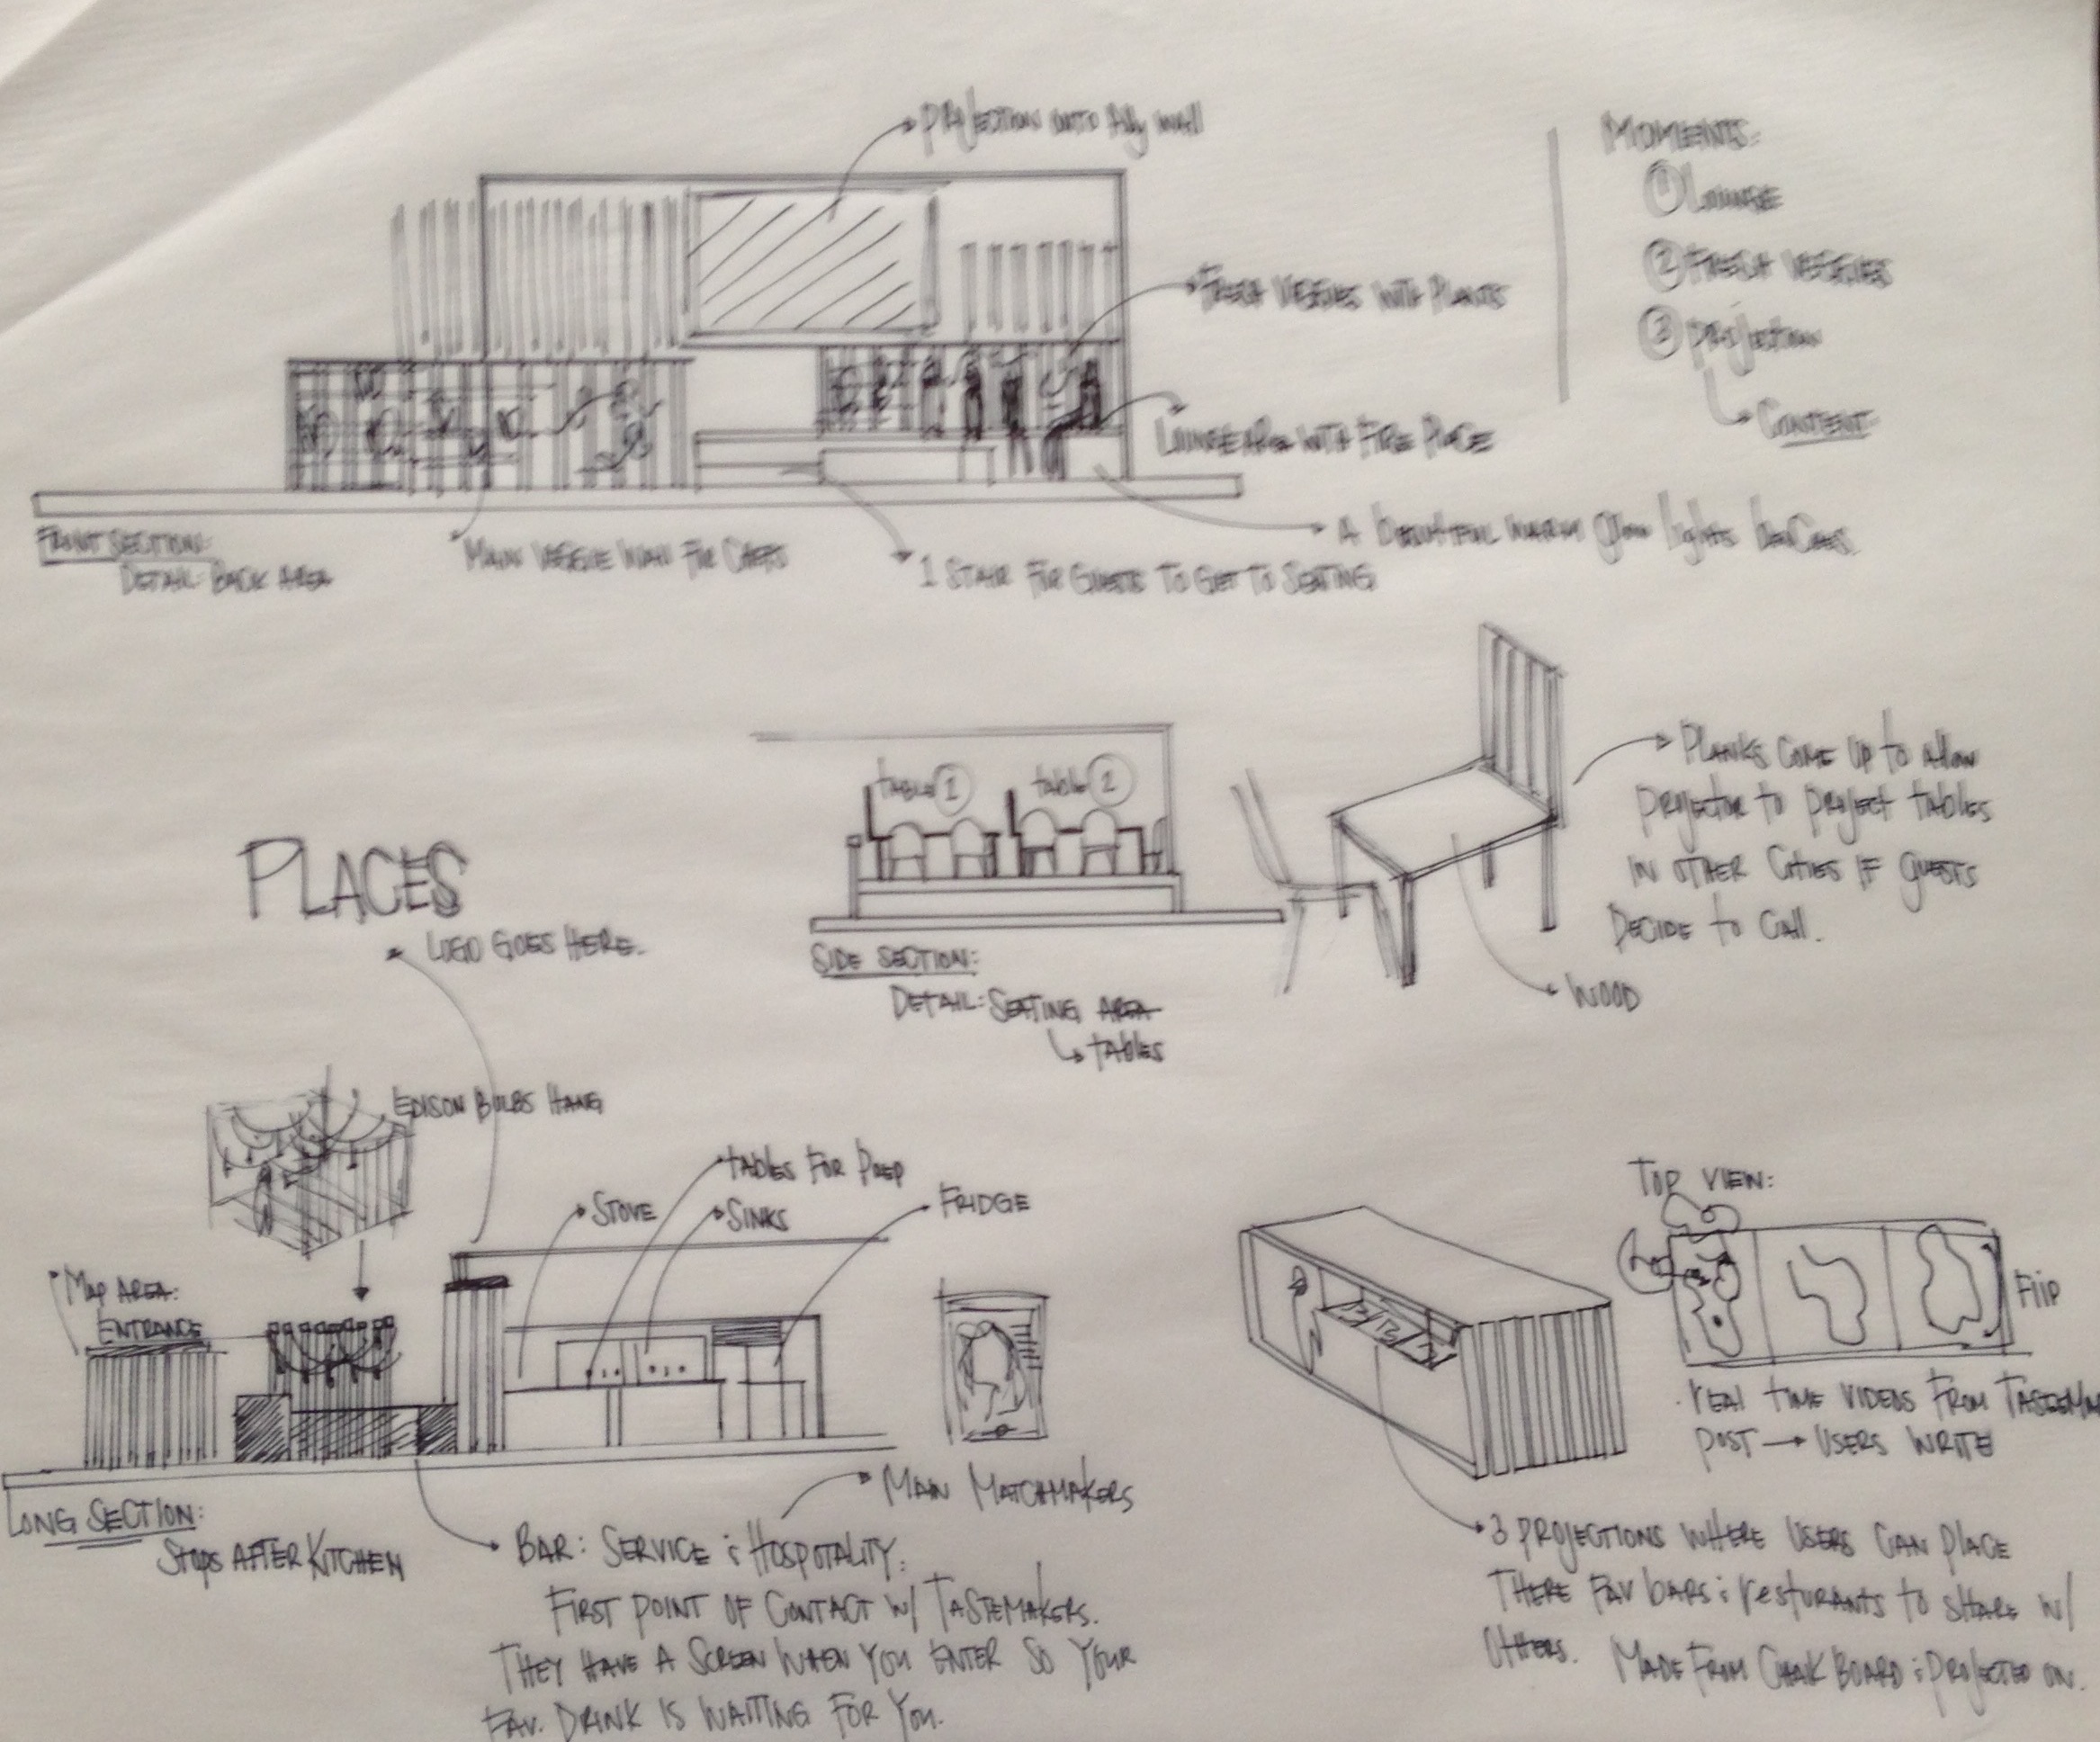 PROJECTION ONTO Any Wall
MOMENTS:
① LOUNGE
② FRESH VEGGIES
③ PROJECTION
CONTENT
FRESH VEGGIES WITH PLANTS
LOUNGE AREA WITH FIRE PLACE
A BEAUTIFUL WARM GLOW LIGHTS BENCHES
FRONT SECTION:
DETAIL: BACK AREA
MAIN VEGGIE WALL FOR CHEFS
1 STAIR FOR GUESTS TO GET TO SEATING
TABLE ①
TABLE ②
PLANKS COME UP TO ALLOW
PROJECTOR TO PROJECT TABLES
IN OTHER CITIES IF GUESTS
DECIDE TO CALL.
WOOD
SIDE SECTION:
DETAIL: SEATING AREA
TABLES
PLACES
LOGO GOES HERE.
EDISON BULBS HANG
TABLES FOR PREP
STOVE
SINKS
FRIDGE
MAP AREA:
ENTRANCE
LONG SECTION:
STOPS AFTER KITCHEN
MAIN MATCHMAKERS
BAR: SERVICE & HOSPOTALITY:
FIRST POINT OF CONTACT W/ TASTEMAKERS.
THEY HAVE A SCREEN WHEN YOU ENTER SO YOUR
FAV. DRINK IS WAITING FOR YOU.
TOP VIEW:
Flip
REAL TIME VIDEOS FROM TASTEM
POST → USERS WRITE
3 PROJECTIONS WHERE USERS CAN PLACE
THERE FAV BARS & RESTURANTS TO SHARE W/
OTHERS. MADE FROM CHALK BOARD & PROJECTED ON.